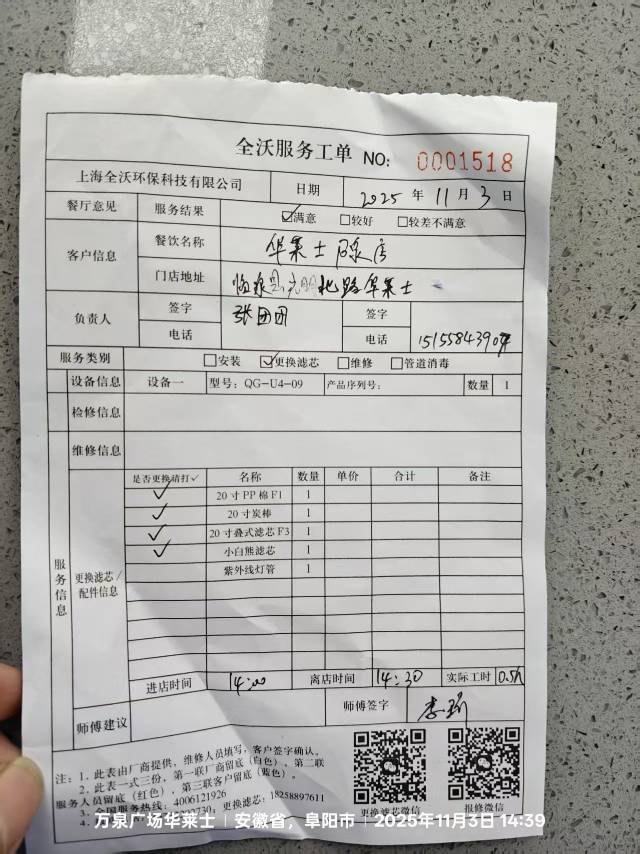 全沃服务工单 NO: 0001518
上海全沃环保科技有限公司 日期 2025 年 11 月 3 日
餐厅意见 服务结果 ☑满意 □较好 □较差不满意
客户信息 餐饮名称 华莱士 店
门店地址 临泉县光明北路华莱士
负责人 签字 张团团 签字
电话 电话
服务类别 □安装 ☑更换滤芯 □维修 □管道消毒
设备信息 设备一 型号: QG-U4-09 产品序列号: 数量 1
检修信息
维修信息
服务信息
更换滤芯/配件信息
是否更换请打✓ 名称 数量 单价 合计 备注
✓ 20寸PP棉F1 1
✓ 20寸炭棒 1
✓ 20寸叠式滤芯F3 1
✓ 小白熊滤芯 1
紫外线灯管 1
进店时间 14:00 离店时间 14:30 实际工时 0.5h
师傅建议 师傅签字
注: 1. 此表由厂商提供, 维修人员填写, 客户签字确认。
2. 此表一式三份, 第一联厂商留底(白色), 第二联
服务人员留底(红色), 第三联客户留底(蓝色)。
3. 全国服务热线: 4006121926
4. 更换滤芯: 18258897611
更换滤芯微信 报修微信
万泉广场华莱士 | 安徽省, 阜阳市 | 2025年11月3日 14:39